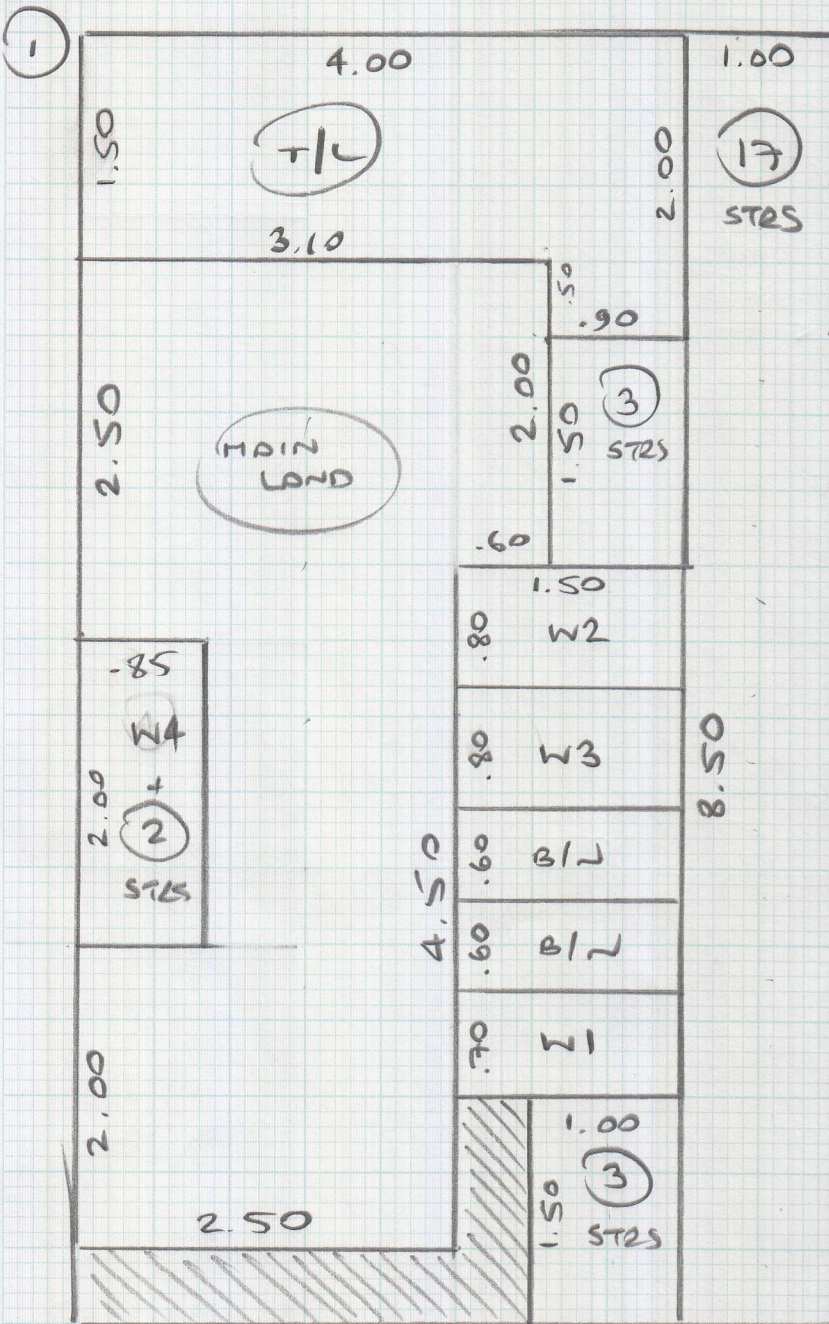 1
4.00
1.00
1.50
T/L
2.00
17
STRS
3.10
.50
.90
2.50
MAIN
LAND
2.00
1.50
3
STRS
.60
1.50
.80
W2
.85
W4
+
2
STRS
2.00
.80
W3
8.50
4.50
.60
B/N
.60
B/N
.70
W1
2.00
1.00
3
STRS
1.50
2.50